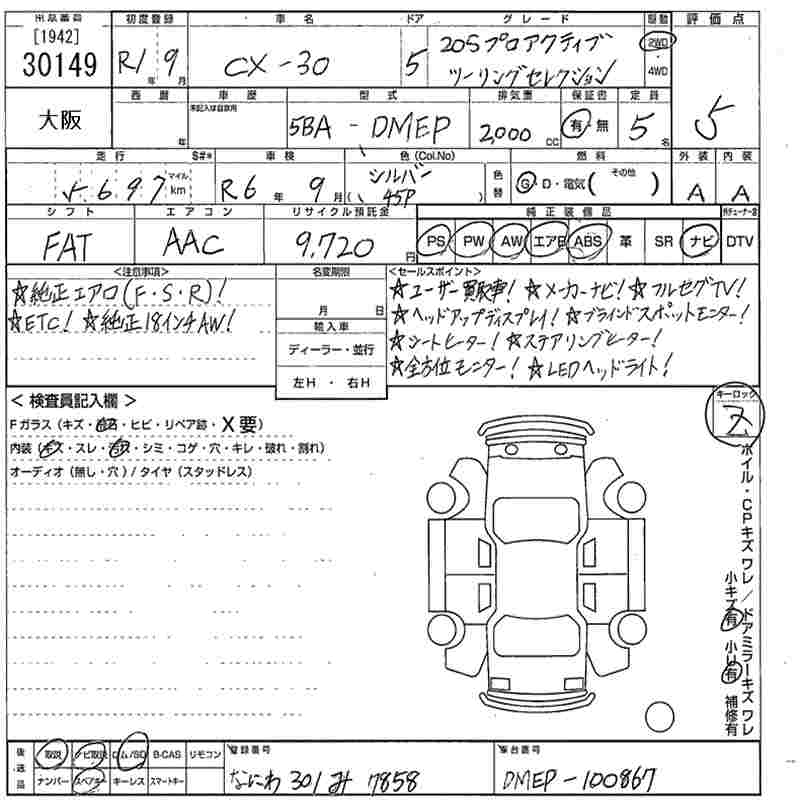 出品番号 初度登録 車名 ドア グレード 駆動 評価点
[1942]
30149 R1年 9月 CX-30 5 20Sプロアクティブ 2WD 5
ツーリングセレクション 4WD
大阪 西暦 車歴 型式 排気量 保証書 定員
未記入は自家用
年 5BA-DMEP 2,000cc 有・無 5名
走行 S#* 車検 色(Col.No) 色替 燃料 その他 外装 内装
5697 マイル km R6年 9月 シルバー Ⓖ・D・電気( ) A A
( 45P )
シフト エアコン リサイクル預託金 純正装備品
FAT AAC 9,720円 PS PW AW エアB ABS 革 SR ナビ DTV
<注意事項> 名変期限 <セールスポイント>
☆純正エアロ(F・S・R)! 月 日 ☆ユーザー買取車! ☆メーカーナビ! ☆フルセグTV!
☆ETC! ☆純正18インチAW! 輸入車 ☆ヘッドアップディスプレイ! ☆ブラインドスポットモニター!
ディーラー・並行 ☆シートヒーター! ☆ステアリングヒーター!
左H ・ 右H ☆全方位モニター! ☆LEDヘッドライト!
<検査員記入欄> キーロック
Fガラス(キズ・ ・ヒビ・リペア跡・X要) ヌ
内装(キズ・スレ・ ・シミ・コゲ・穴・キレ・破れ・割れ)
オーディオ(無し・穴)/タイヤ(スタッドレス)
ホイル・CPキズワレ/ドアミラーキズワレ
小キズ有 小凹有 補修有
後送品 取説 ナビ取説 ロム/SD B-CAS リモコン 登録番号 車台番号
ナンバー スペアキー キーレス スマートキー なにわ 301 み 7858 DMEP-100867